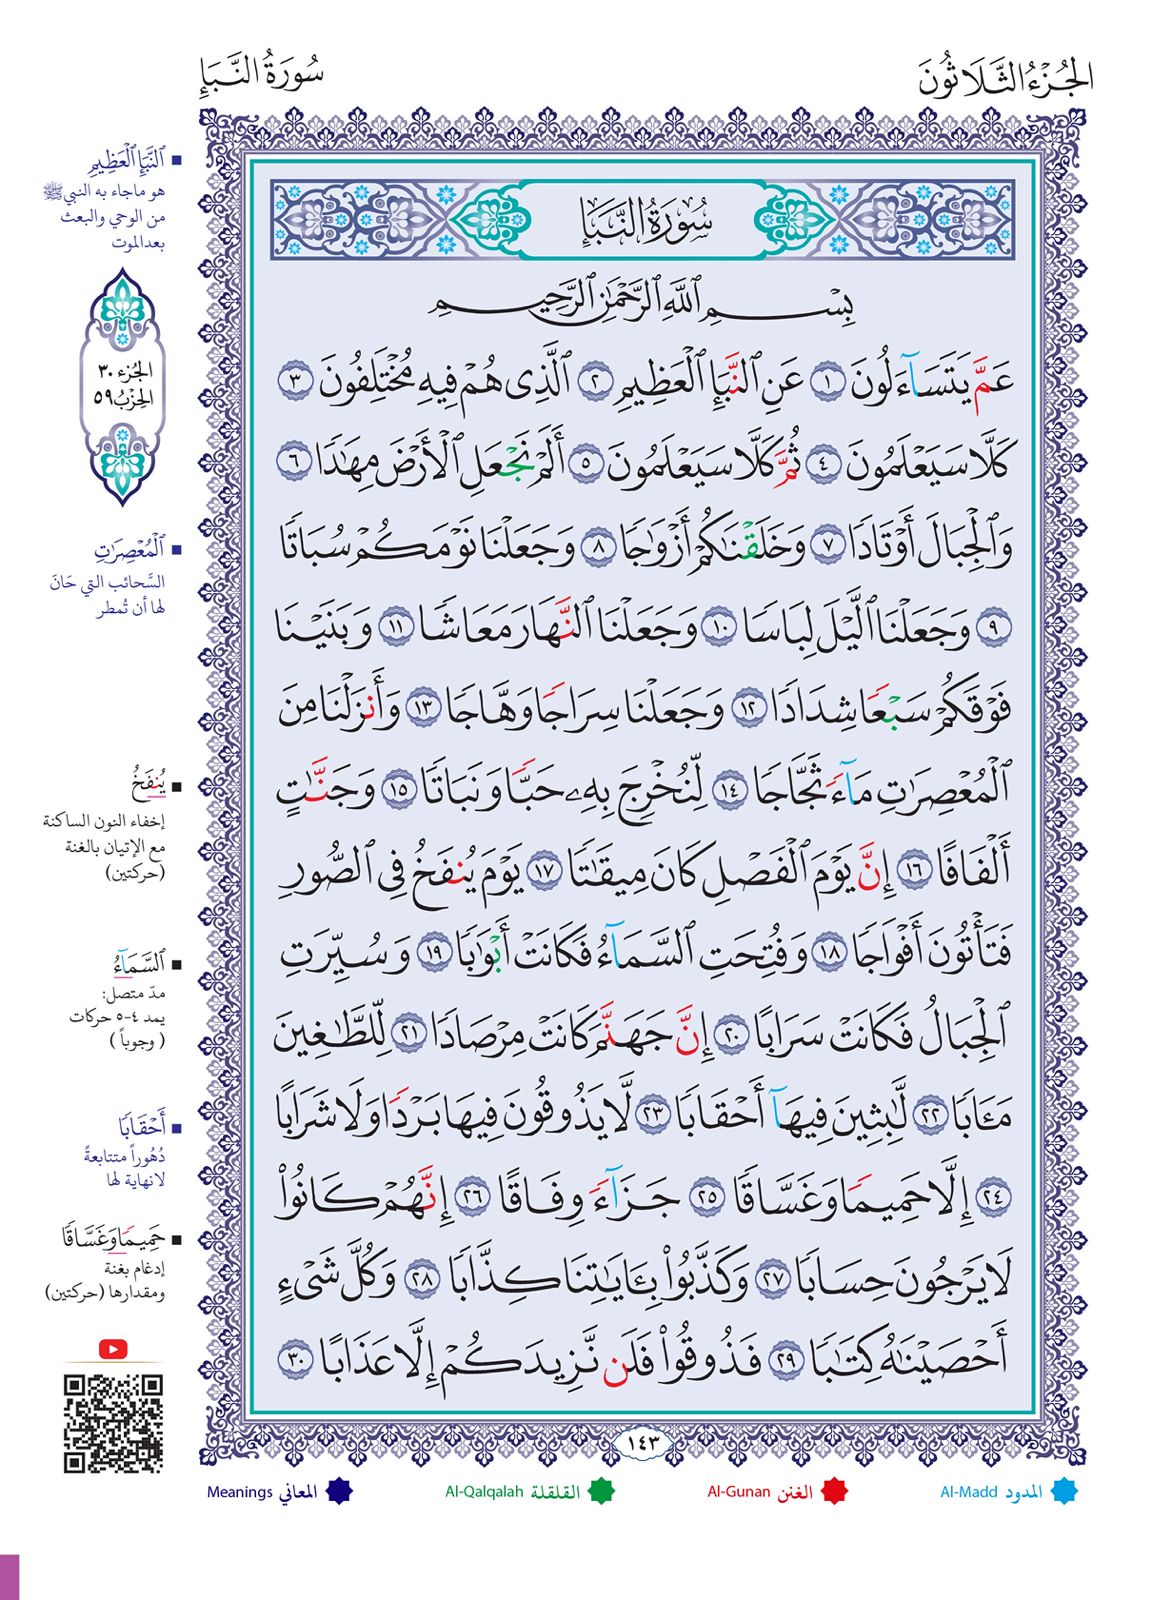 الجُزْءُ الثَّلَاثُونَ
سُورَةُ النَّبَإِ
سُورَةُ النَّبَإِ
بِسْمِ ٱللَّهِ ٱلرَّحْمَٰنِ ٱلرَّحِيمِ
عَمَّ يَتَسَآءَلُونَ ١ عَنِ ٱلنَّبَإِ ٱلْعَظِيمِ ٢ ٱلَّذِى هُمْ فِيهِ مُخْتَلِفُونَ ٣
كَلَّا سَيَعْلَمُونَ ٤ ثُمَّ كَلَّا سَيَعْلَمُونَ ٥ أَلَمْ نَجْعَلِ ٱلْأَرْضَ مِهَٰدًا ٦
وَٱلْجِبَالَ أَوْتَادًا ٧ وَخَلَقْنَٰكُمْ أَزْوَٰجًا ٨ وَجَعَلْنَا نَوْمَكُمْ سُبَاتًا
٩ وَجَعَلْنَا ٱلَّيْلَ لِبَاسًا ١٠ وَجَعَلْنَا ٱلنَّهَارَ مَعَاشًا ١١ وَبَنَيْنَا
فَوْقَكُمْ سَبْعًا شِدَادًا ١٢ وَجَعَلْنَا سِرَاجًا وَهَّاجًا ١٣ وَأَنزَلْنَا مِنَ
ٱلْمُعْصِرَٰتِ مَآءً ثَجَّاجًا ١٤ لِّنُخْرِجَ بِهِۦ حَبًّا وَنَبَاتًا ١٥ وَجَنَّٰتٍ
أَلْفَافًا ١٦ إِنَّ يَوْمَ ٱلْفَصْلِ كَانَ مِيقَٰتًا ١٧ يَوْمَ يُنفَخُ فِى ٱلصُّورِ
فَتَأْتُونَ أَفْوَاجًا ١٨ وَفُتِحَتِ ٱلسَّمَآءُ فَكَانَتْ أَبْوَٰبًا ١٩ وَسُيِّرَتِ
ٱلْجِبَالُ فَكَانَتْ سَرَابًا ٢٠ إِنَّ جَهَنَّمَ كَانَتْ مِرْصَادًا ٢١ لِّلطَّٰغِينَ
مَـَٔابًا ٢٢ لَّٰبِثِينَ فِيهَآ أَحْقَابًا ٢٣ لَّا يَذُوقُونَ فِيهَا بَرْدًا وَلَا شَرَابًا
٢٤ إِلَّا حَمِيمًا وَغَسَّاقًا ٢٥ جَزَآءً وِفَاقًا ٢٦ إِنَّهُمْ كَانُوا۟
لَا يَرْجُونَ حِسَابًا ٢٧ وَكَذَّبُوا۟ بِـَٔايَٰتِنَا كِذَّابًا ٢٨ وَكُلَّ شَىْءٍ
أَحْصَيْنَٰهُ كِتَٰبًا ٢٩ فَذُوقُوا۟ فَلَن نَّزِيدَكُمْ إِلَّا عَذَابًا ٣٠
ٱلنَّبَإِ ٱلْعَظِيمِ
هو ماجاء به النبي ﷺ
من الوحي والبعث
بعدالموت
الجُزء ٣٠
الحِزْبُ ٥٩
ٱلْمُعْصِرَٰتِ
السَّحائب التي حَانَ
لها أن تُمطر
يُنفَخُ
إخفاء النون الساكنة
مع الإتيان بالغنة
(حركتين)
ٱلسَّمَآءُ
مدّ متصل:
يمد ٤-٥ حركات
( وجوباً )
أَحْقَابًا
دُهُوراً متتابعةً
لانهاية لها
حَمِيمًا وَغَسَّاقًا
إدغام بغنة
ومقدارها (حركتين)
١٤٣
المدود Al-Madd
الغنن Al-Gunan
القلقلة Al-Qalqalah
المعاني Meanings